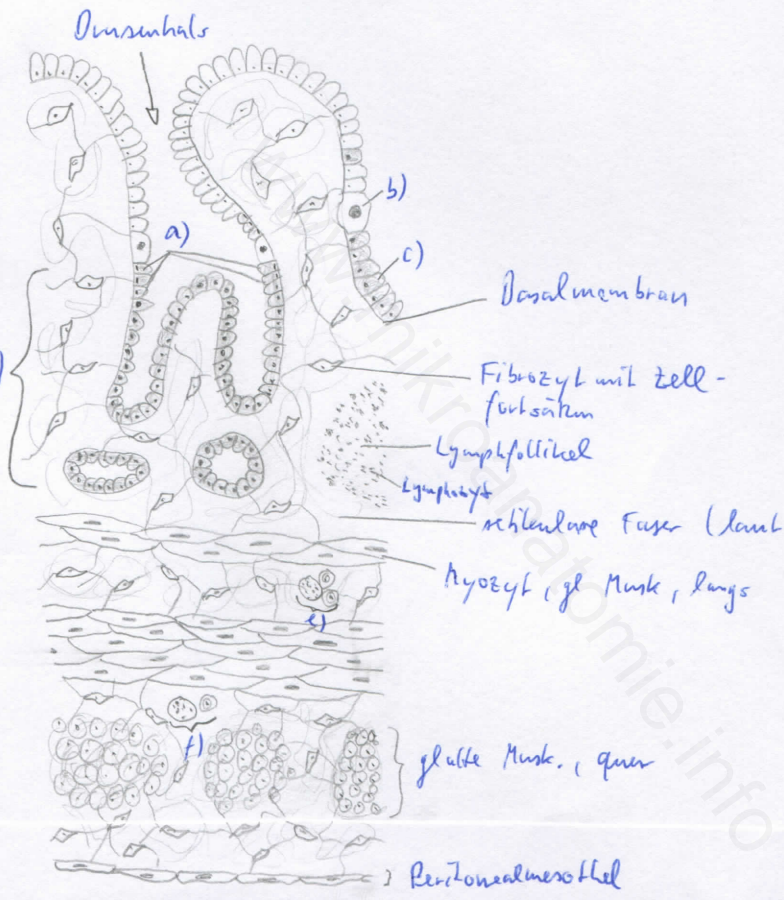 Drüsenhals
a)
b)
c)
)
Basalmembran
Fibrozyt mit Zell-
fortsätzen
Lymphfollikel
Lymphozyt
retikuläre Faser (lam
Myozyt, gl Musk, längs
e)
f)
glatte Musk., quer
Peritonealmesothel
www.mikroanatomie.info